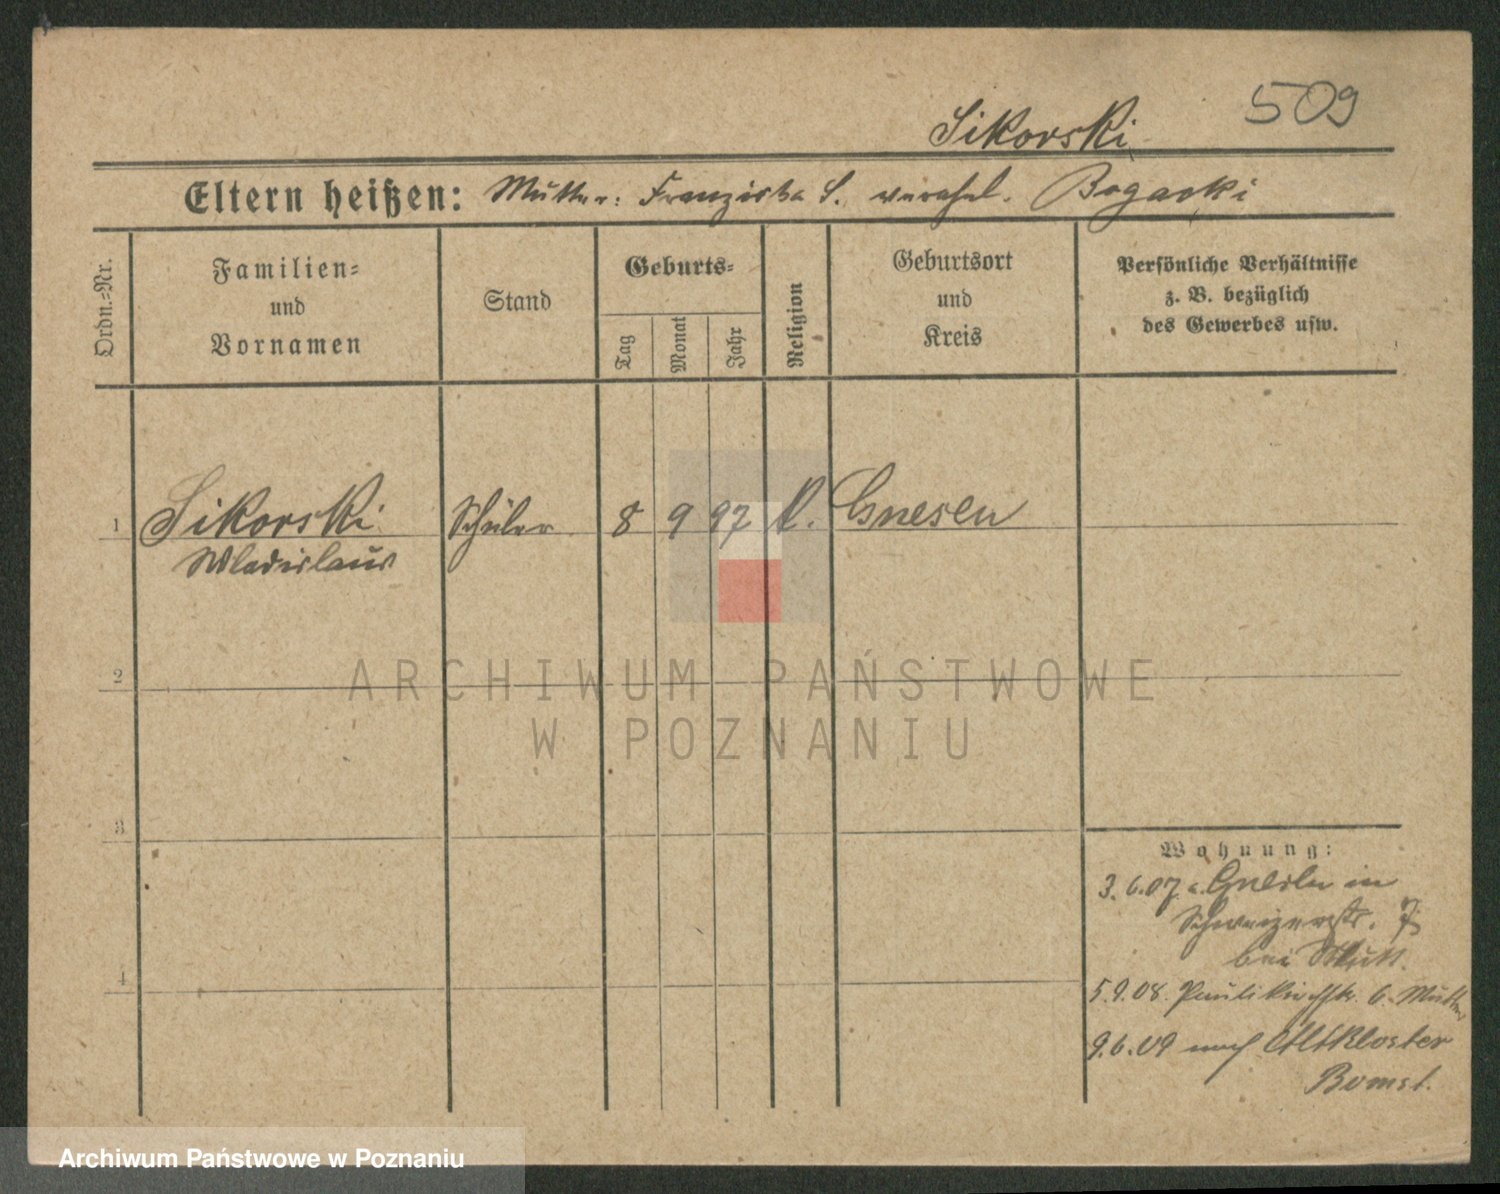 509
Sikorski
Eltern heißen: Mutter: Franziska S. verehel. Bogacki
Ordn.-Nr.
Familien-
und
Vornamen
Stand
Geburts-
Tag
Monat
Jahr
Religion
Geburtsort
und
Kreis
Persönliche Verhältnisse
z. B. bezüglich
des Gewerbes usw.
1 Sikorski Schüler 8 9 97 k. Gnesen
Wladislaus
2
ARCHIWUM PAŃSTWOWE
W POZNANIU
3
Wohnung:
3.6.07 a. Gnesen in
Schweizerstr. 7
bei Mutt.
4
5.9.08. Paulikirchstr. 6. Mutter
9.6.09 nach Altkloster
Bomst.
Archiwum Państwowe w Poznaniu